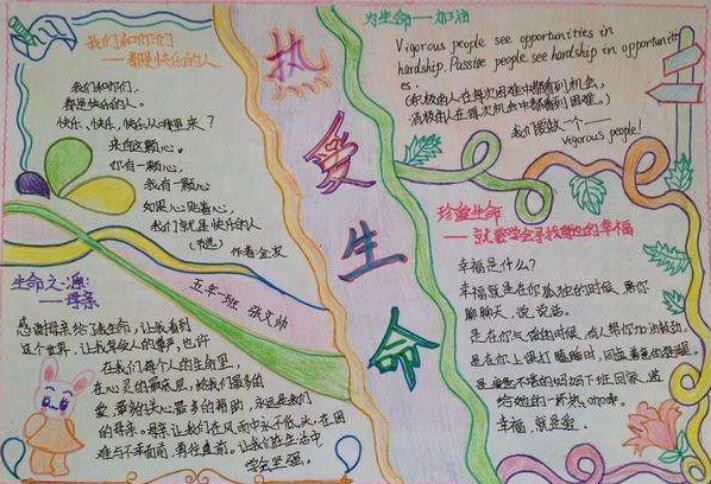 我们和你们
——都是快乐的人
我们和你们,
都是快乐的人。
快乐,快乐,快乐从哪里来?
来自这颗心。
你有一颗心,
我有一颗心
如果心贴着心,
我们就是快乐的人
(节选)
作者:金波
生命之源:
——母亲
感谢母亲给了我生命,让我看到
这个世界,让我享受人的尊严,也许
在我们每个人的生命里,
在心灵的最底层,给我们最多的
爱、最多的关心最多的帮助,永远是我们
的母亲。母亲让我们在风雨中永不低头,在困
难与不幸面前,勇往直前。让我们在生活中
学会坚强。
热爱生命
五年一班 张文帅
为生命——加油
Vigorous people see opportunities in
hardship. Passive people see hardship in opportuniti
es.
(积极的人在每次困难中都看到机会,
消极的人在每次机会中都看到困难。)
我们要做一个——
vigorous people!
珍重生命
——就要学会寻找身边的幸福
幸福是什么?
幸福就是在你孤独的时候,陪你
聊聊天、说说话。
是在你气馁的时候,有人帮你加油鼓劲。
是在你上课打瞌睡时,同桌善意的提醒。
的妈妈下班回家,递
给她的一杯热
幸福,就是爱。